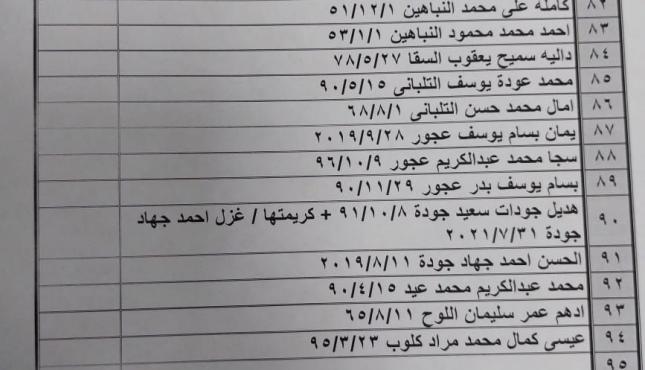 ٨٢ كاملة على محمد النباهين ٥١/١٢/١
٨٣ احمد محمد محمود النباهين ٥٣/١/١
٨٤ داليه سميح يعقوب السقا ٧٨/٥/٢٧
٨٥ محمد عودة يوسف التلبانى ٩٠/٥/١٥
٨٦ امال محمد حسن التلبانى ٦٨/٨/١
٨٧ يمان بسام يوسف عجور ٢٠١٩/٩/٢٨
٨٨ سجا محمد عبدالكريم عجور ٩٦/١٠/٩
٨٩ بسام يوسف بدر عجور ٩٠/١١/٢٩
٩٠ هديل جودات سعيد جودة ٩١/١٠/٨ + كريمتها / غزل احمد جهاد
جودة ٢٠٢١/٧/٣١
٩١ الحسن احمد جهاد جودة ٢٠١٩/٨/١١
٩٢ محمد عبدالكريم محمد عيد ٩٠/٤/١٥
٩٣ ادهم عمر سليمان اللوح ٦٥/٨/١١
٩٤ عيسى كمال محمد مراد كلوب ٩٥/٣/٢٣
٩٥